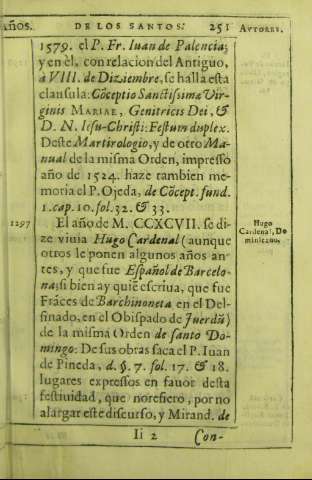 años.
DE LOS SANTOS.
251
AVTORES.
1579. el P. Fr. Iuan de Palencia;
y en èl, con relacion del Antiguo,
à VIII. de Diziembre, se halla esta
clausula: Cõceptio Sanctissimæ Vir-
ginis MARIAE, Genitricis Dei, &
D. N. Iesu-Christi: Festum duplex.
Deste Martirologio, y de otro Ma-
nual de la misma Orden, impresso
año de 1524. haze tambien me-
moria el P. Ojeda, de Cõcept. fund.
1. cap. 10. fol. 32. & 33.
1297
El año de M. CCXCVII. se di-
ze viuia Hugo Cardenal (aunque
otros le ponen algunos años an-
tes, y que fue Español de Barcelo-
na; si bien ay quiē escriua, que fue
Frāces de Barchinoneta en el Del-
finado, en el Obispado de Juerdū)
de la misma Orden de santo Do-
mingo: De sus obras saca el P. Iuan
de Pineda, d. §. 7. fol. 17. & 18.
lugares expressos en fauor desta
festiuidad, que no refiero, por no
alargar este discurso, y Mirand. de
Hugo
Cardenal, Do
minicano.
Ii 2
Con-